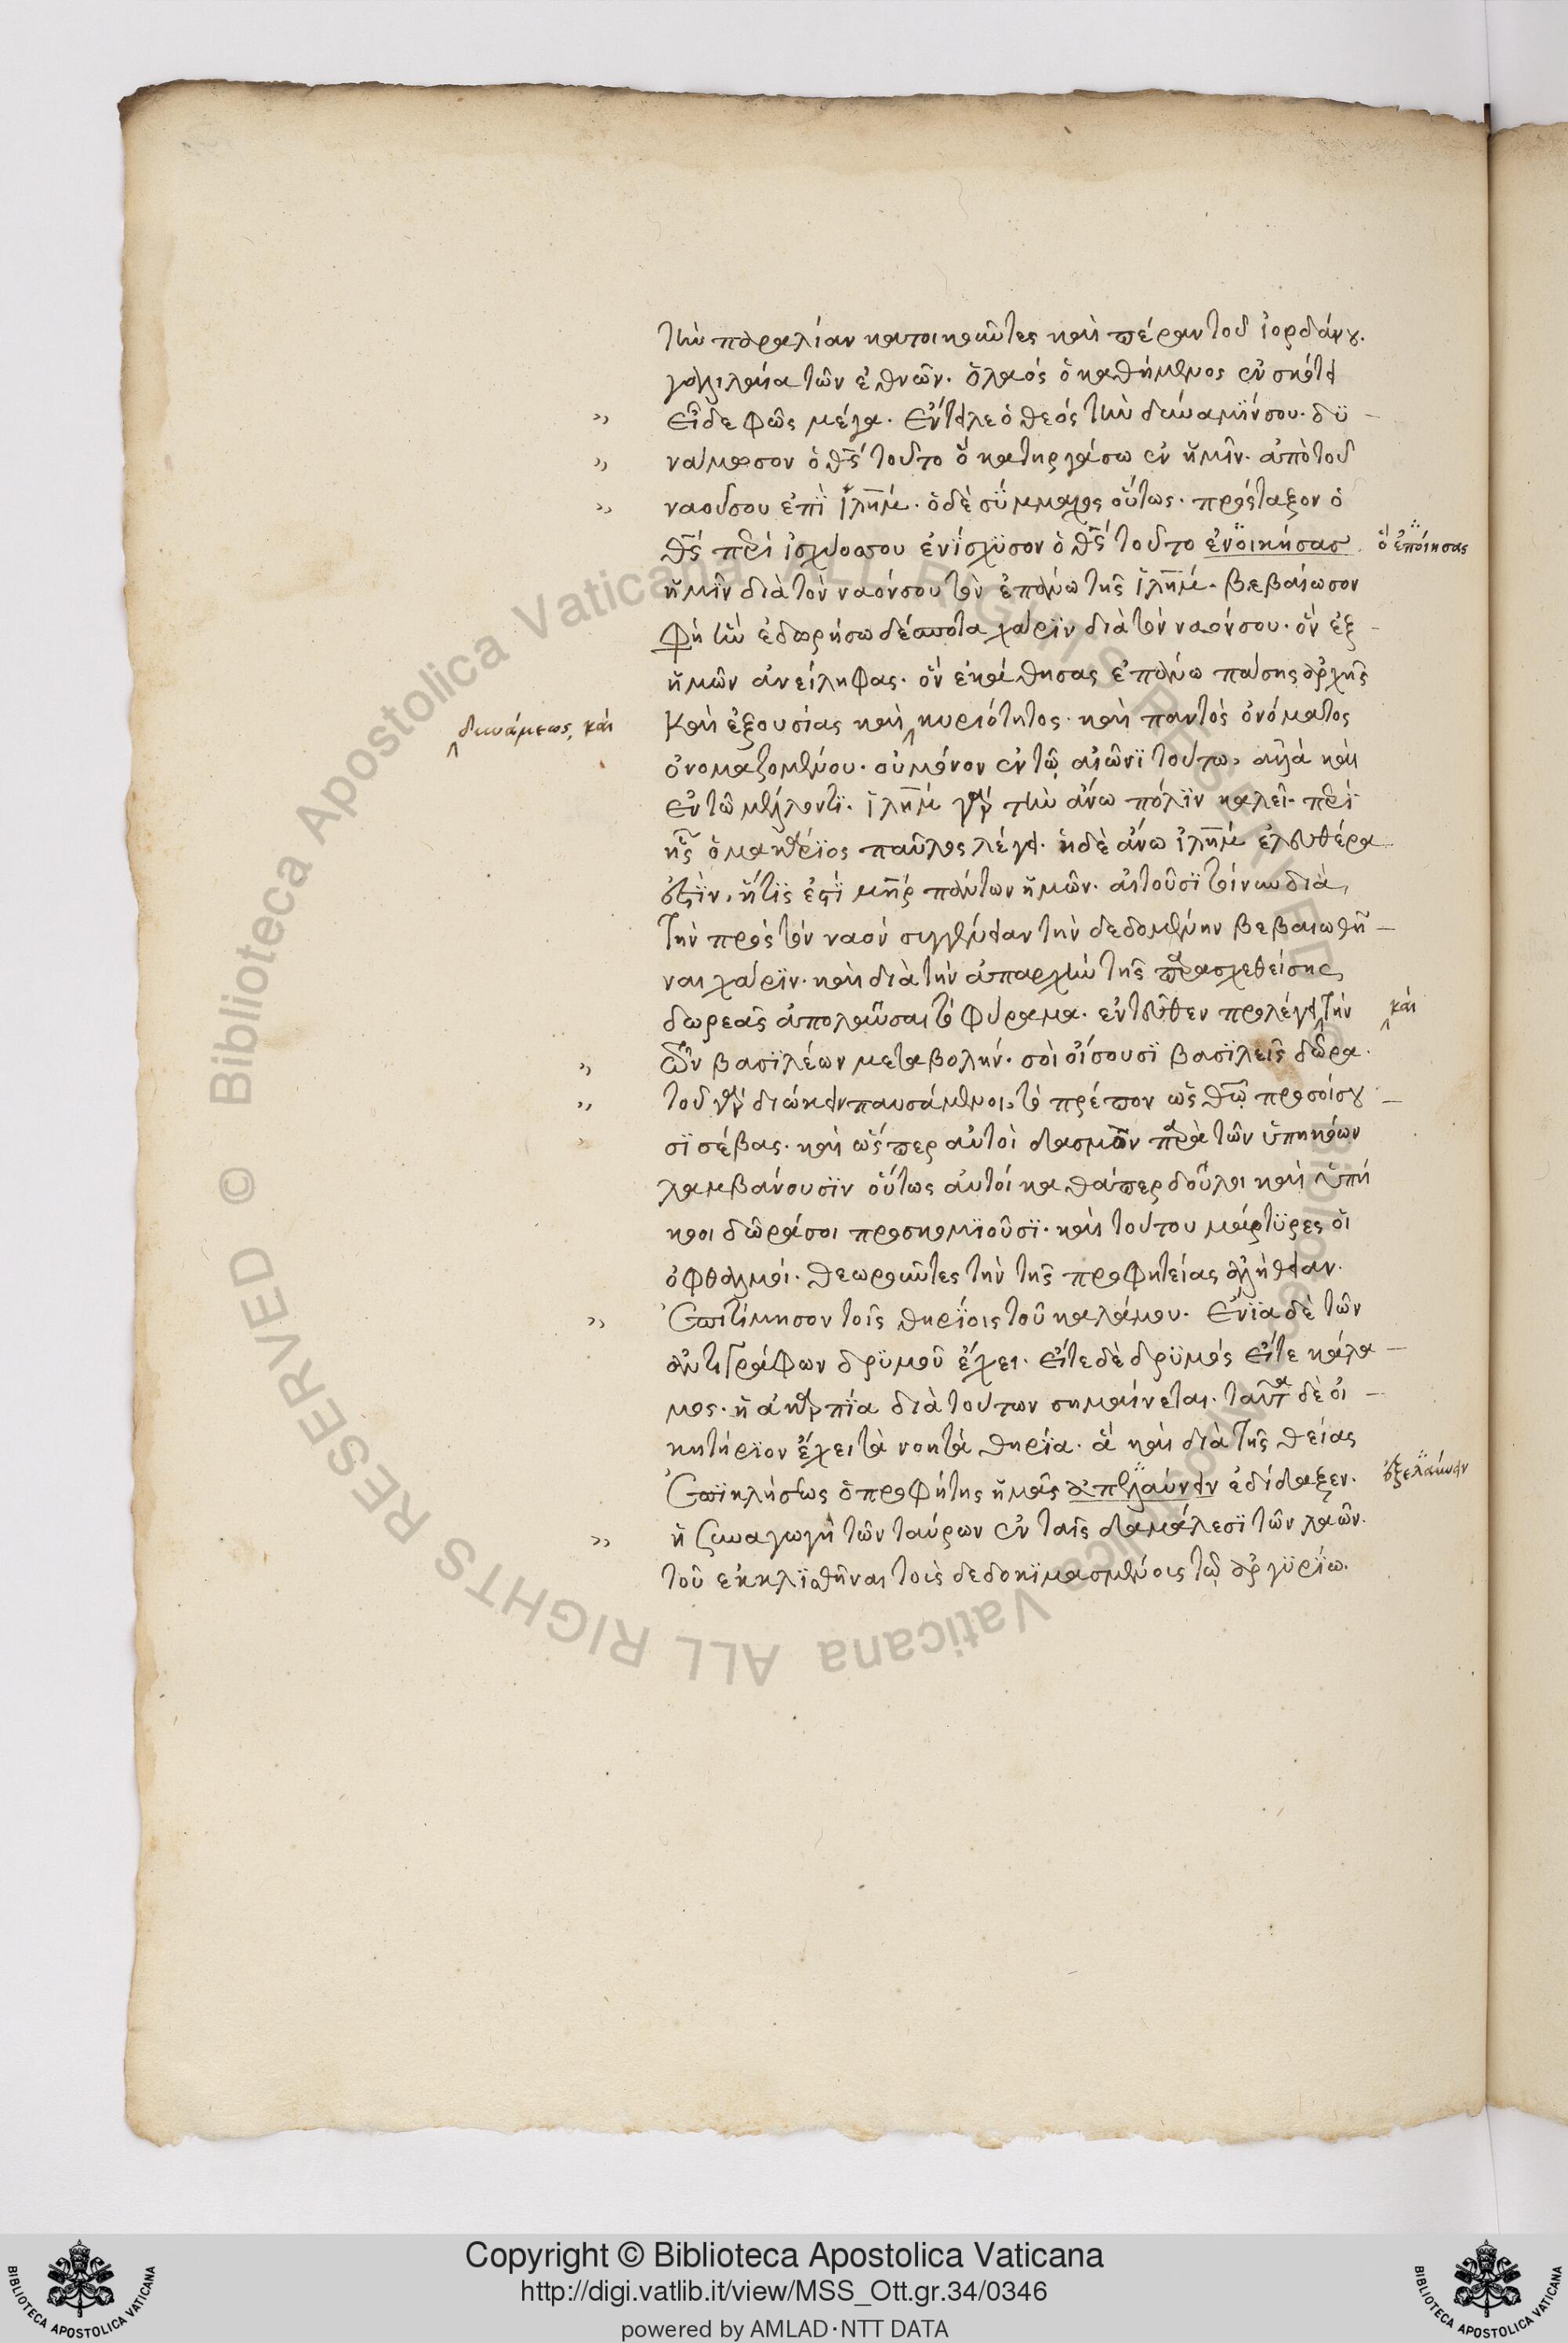 τὴν παραλίαν κατοικοῦντες καὶ πέραν τοῦ ἰορδάνου.
γαλιλαία τῶν ἐθνῶν. ὁ λαὸς ὁ καθήμενος ἐν σκότει
εἶδε φῶς μέγα. ἔντειλε ὁ θεός τὴν δυναμίν σου. δυ
νάμωσον ὁ θς τοῦτο ὃ κατηργάσω ἐν ἡμῖν. ἀπὸ τοῦ
ναοῦ σου ἐπὶ ἰλημ. ὁ δὲ σύμμαχος οὕτως. πρόσταξον ὁ
θς περὶ ἰσχύος σου ἐνίσχυσον ὁ θς τοῦτο ἐνοικήσας ὃ ἐποίησας
ἡμῖν διὰ τὸν ναόν σου τὸν ἐπάνω τῆς ἰλημ. βεβαίωσον
φη ἣν ἐδωρήσω δέσποτα χάριν διὰ τὸν ναόν σου. ὃν ἐξ
ἡμῶν ἀνείληφας. ὃν ἐκάθησας ἐπάνω πάσης ἀρχῆς
δυνάμεως, καὶ
καὶ ἐξουσίας καὶ κυριότητος. καὶ παντὸς ὀνόματος
ὀνομαζομένου. οὐ μόνον ἐν τῷ αἰῶνι τούτω, ἀλλὰ καὶ
ἐν τῶ μέλλοντι. ἰλημ γὰρ τὴν ἄνω πόλιν καλεῖ. περὶ
ἧς ὁ μακάριος παῦλος λέγει. ἡ δὲ ἄνω ἰλημ ἐλευθέρα
ἐστὶν, ἥτις ἐστὶ μηρ πάντων ἡμῶν. αἰτοῦσι τοίνυν διὰ
τὴν πρὸς τὸν ναὸν συγγένειαν τὴν δεδομένην βεβαιωθῆ
ναι χάριν. καὶ διὰ τὴν ἀπαρχὴν τῆς παρασχεθείσης
δωρεᾶς ἀπολαῦσαι τὸ φύραμα. ἐντεῦθεν προλέγει τὴν καὶ
τῶν βασιλέων μεταβολήν. σοὶ οἴσουσι βασιλεῖς δῶρα.
τοῦ γὰρ διώκειν παυσάμενοι, τὸ πρέπον ὡς θῶ προσοίσου
σι σέβας. καὶ ὥσπερ αὐτοὶ δασμὸν παρὰ τῶν ὑπηκόων
λαμβάνουσιν οὕτως αὐτοί καθάπερ δοῦλοι καὶ ὑπή
κοοι δῶρά σοι προσκομιοῦσι. καὶ τούτου μάρτυρες οἱ
ὀφθαλμοί. θεωροῦντες τὴν τῆς προφητείας ἀλήθειαν.
ἐπιτίμησον τοῖς θηρίοις τοῦ καλάμου. ἔνια δὲ τῶν
ἀντιγράφων δρυμοῦ ἔχει. εἴτε δὲ δρυμός εἴτε κάλα
μος. ἡ ἀσέβεια διὰ τούτων σημαίνεται. ταύτα δὲ οἰ
κητήριον ἔχει τὰ νοητὰ θηρία. ἃ καὶ διὰ τῆς θείας
ἐπικλήσεως ὁ προφήτης ἡμᾶς ἀπελαύνειν ἐδίδαξεν. ἐξελαύνειν
ἡ συναγωγὴ τῶν ταύρων ἐν ταῖς δαμάλεσι τῶν λαῶν.
τοῦ ἐκκλισθῆναι τοὺς δεδοκιμασμένους τῷ ἀργυρίω.
Copyright © Biblioteca Apostolica Vaticana
http://digi.vatlib.it/view/MSS_Ott.gr.34/0346
powered by AMLAD·NTT DATA
BIBLIOTECA APOSTOLICA VATICANA
BIBLIOTECA APOSTOLICA VATICANA
© Biblioteca Apostolica Vaticana ALL RIGHTS RESERVED
© Biblioteca Apostolica Vaticana ALL RIGHTS RESERVED